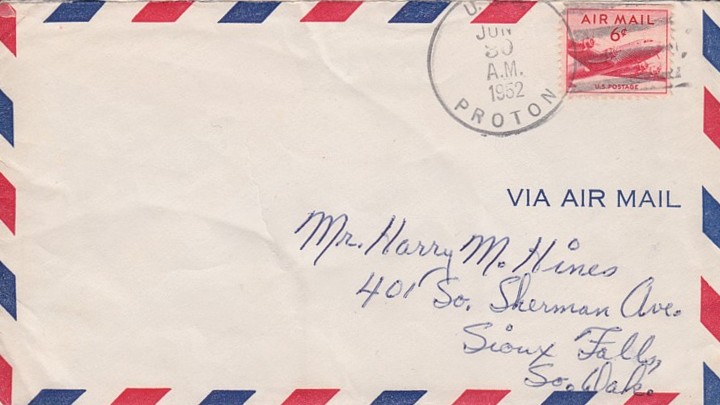 U.
JUN
30
A.M.
1952
PROTON
AIR MAIL
6¢
U.S. POSTAGE
VIA AIR MAIL
Mr. Harry M. Hines
401 So. Sherman Ave.
Sioux Falls,
So. Dak.